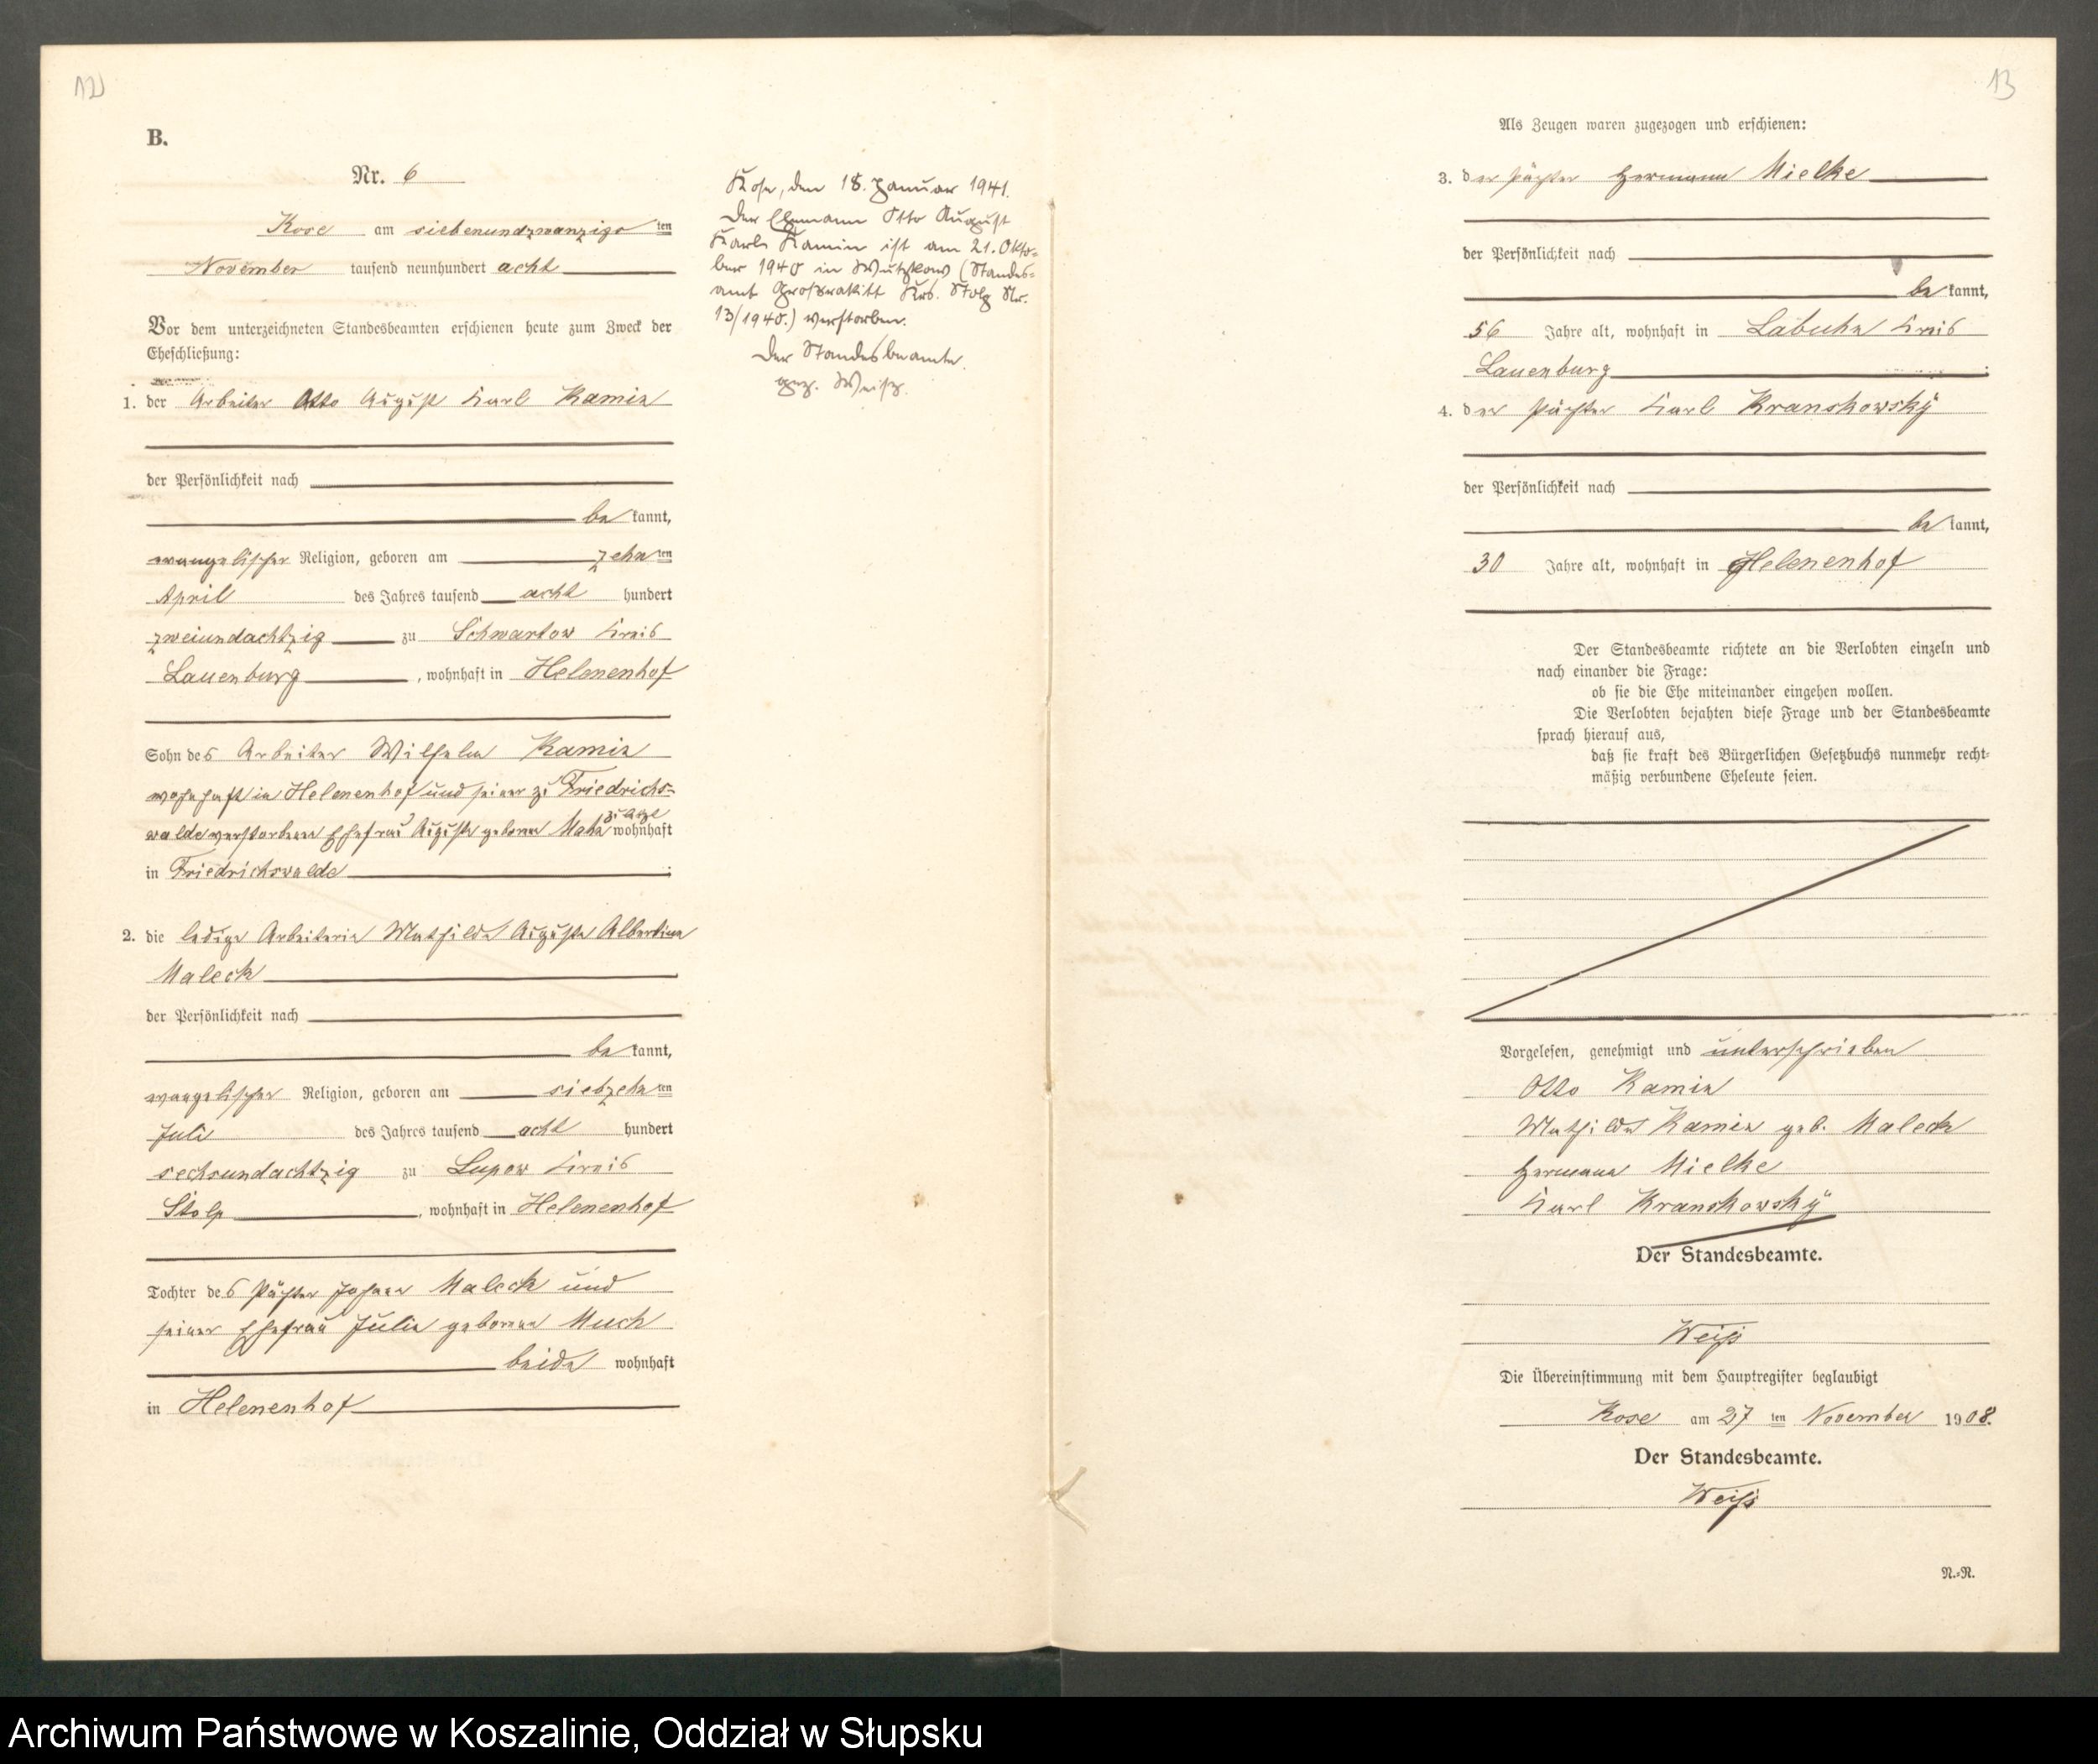 12
B.
Nr. 6
Kose am siebenundzwanzigs ten
November tausend neunhundert acht
Vor dem unterzeichneten Standesbeamten erschienen heute zum Zweck der
Eheschließung:
1. der Arbeiter Otto August Karl Kamin
der Persönlichkeit nach
be kannt,
evangelischer Religion, geboren am zehn ten
April des Jahres tausend acht hundert
zweiundachtzig zu Schwartow Kreis
Lauenburg, wohnhaft in Helenenhof
Sohn des Arbeiter Wilhelm Kamin
wohnhaft in Helenenhof und seiner zu Friedrichs-
walde verstorbenen Ehefrau Auguste geborene wohnhaft
in Friedrichswalde;
2. die ledige Arbeiterin Mathilde Auguste Albertine
Maleck
der Persönlichkeit nach
be kannt,
evangelischer Religion, geboren am siebzehn ten
Juli des Jahres tausend acht hundert
sechsundachtzig zu Lupow Kreis
Stolp, wohnhaft in Helenenhof
Tochter des Pächter Johann Maleck und
seiner Ehefrau Julie geborene Much
beide wohnhaft
in Helenenhof
Kose, den 18. Januar 1941.
Der Ehemann Otto August
Karl Kamin ist am 21. Okto-
ber 1940 in Wutzkow (Standes-
amt Großrakitt Krs. Stolp Nr.
13/1940.) verstorben.
Der Standesbeamte.
gez. Weiß.
13
Als Zeugen waren zugezogen und erschienen:
3. der Pächter Hermann Mielke
der Persönlichkeit nach
be kannt,
56 Jahre alt, wohnhaft in Labuhn Kreis
Lauenburg;
4. der Pächter Karl Kranskowsky
der Persönlichkeit nach
be kannt,
30 Jahre alt, wohnhaft in Helenenhof
Der Standesbeamte richtete an die Verlobten einzeln und
nach einander die Frage:
ob sie die Ehe miteinander eingehen wollen.
Die Verlobten bejahten diese Frage und der Standesbeamte
sprach hierauf aus,
daß sie kraft des Bürgerlichen Gesetzbuchs nunmehr recht-
mäßig verbundene Eheleute seien.
Vorgelesen, genehmigt und unterschrieben
Otto Kamin
Mathilde Kamin geb. Maleck
Hermann Mielke
Karl Kranskowsky
Der Standesbeamte.
Weiß
Die Übereinstimmung mit dem Hauptregister beglaubigt
Kose am 27 ten November 1908.
Der Standesbeamte.
Weiß
N.-N.
Archiwum Państwowe w Koszalinie, Oddział w Słupsku